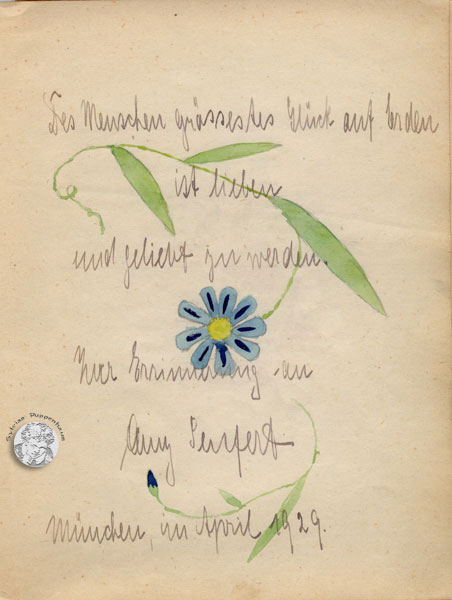 Des Menschen grössestes Glück auf Erden
ist lieben
und geliebt zu werden.
Zur Erinnerung an
Amy Seufert
München, im April 1929.
Sylvias Puppenhaus